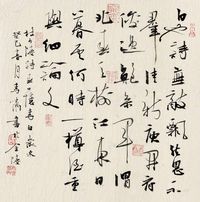 白也詩無敵飄然思不
羣清新庾開府
俊逸鮑參軍渭
北春天樹江東日
暮雲何時一樽酒重
與細論文
春日憶李白歲次
癸巳春月